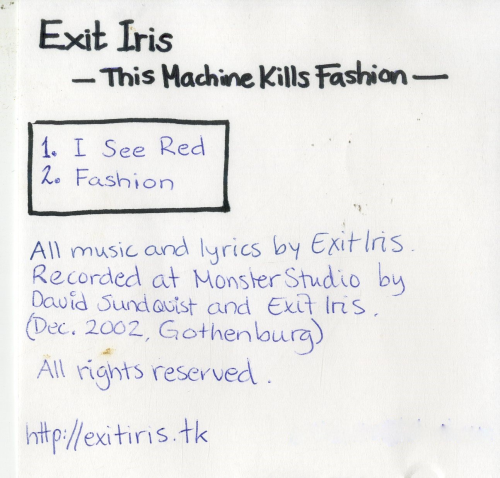 Exit Iris
— This Machine Kills Fashion —
1. I See Red
2. Fashion
All music and lyrics by Exit Iris.
Recorded at Monster Studio by
David Sundqvist and Exit Iris.
(Dec. 2002, Gothenburg)
All rights reserved.
http://exitiris.tk